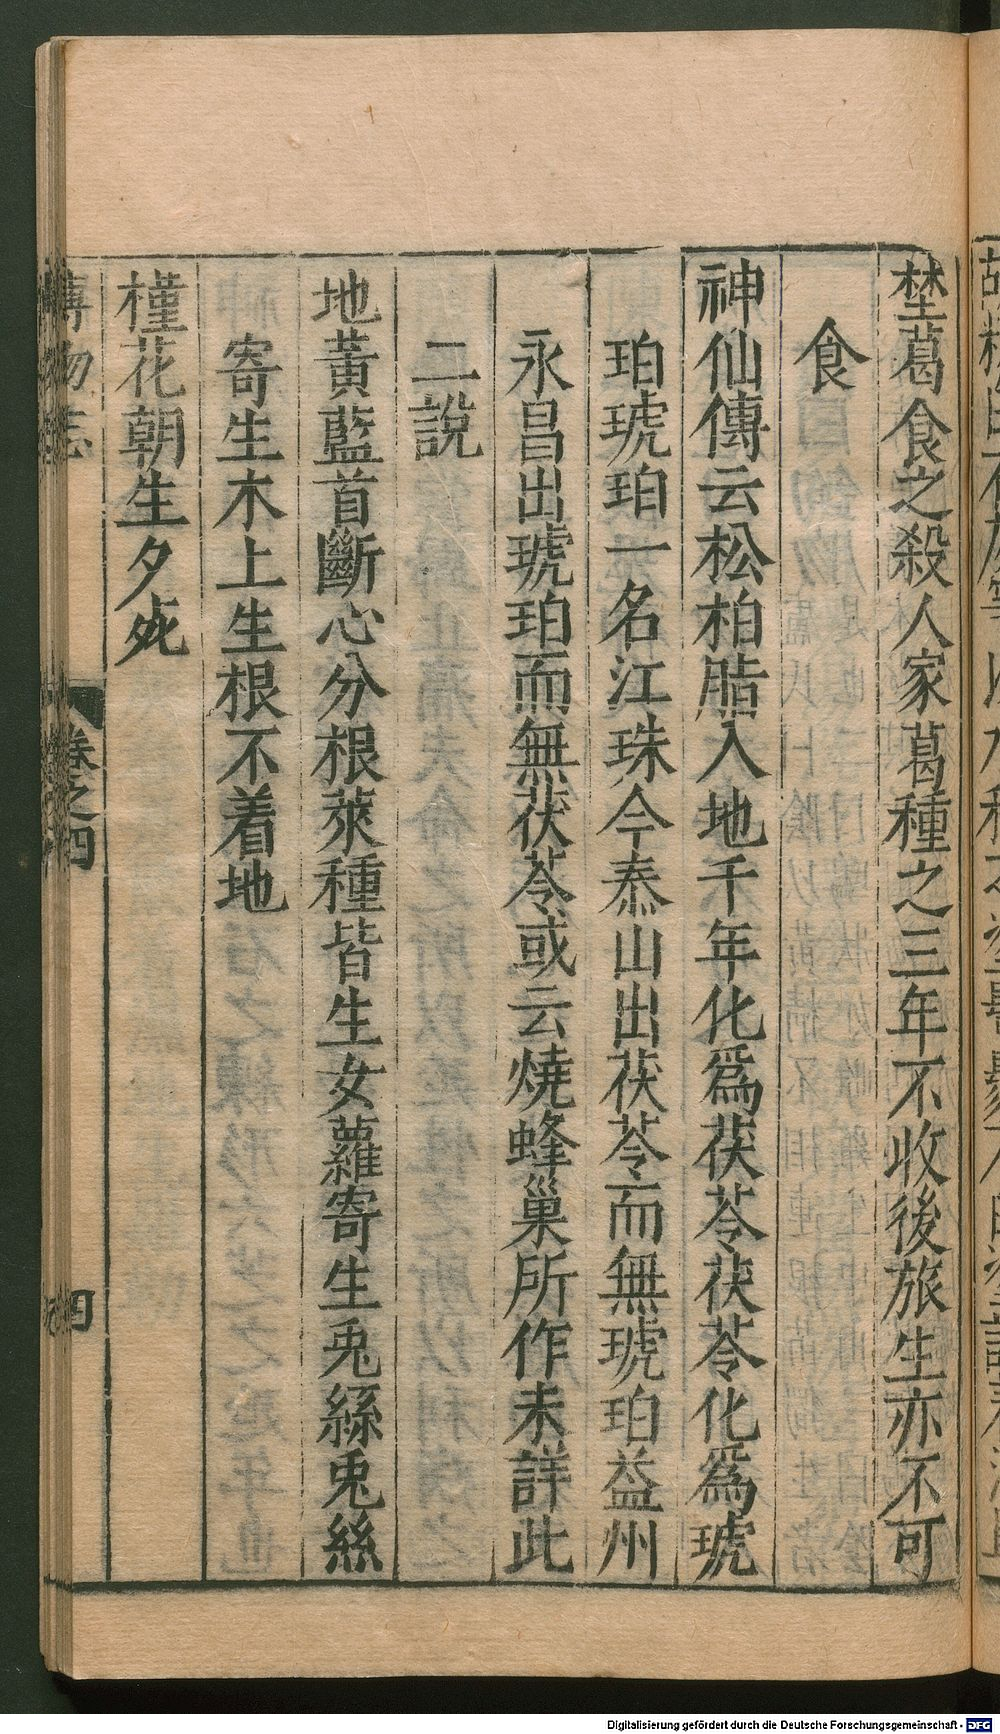 埜葛食之殺人家葛種之三年不收後旅生亦不可
食
神仙傳云松柏脂入地千年化爲茯苓茯苓化爲琥
珀琥珀一名江珠今泰山出茯苓而無琥珀益州
永昌出琥珀而無茯苓或云燒蜂巢所作未詳此
二說
地黃藍首斷心分根菜種皆生女蘿寄生兎絲兎絲
寄生木上生根不着地
槿花朝生夕死
博物志
卷之四
四
Digitalisierung gefördert durch die Deutsche Forschungsgemeinschaft - DFG